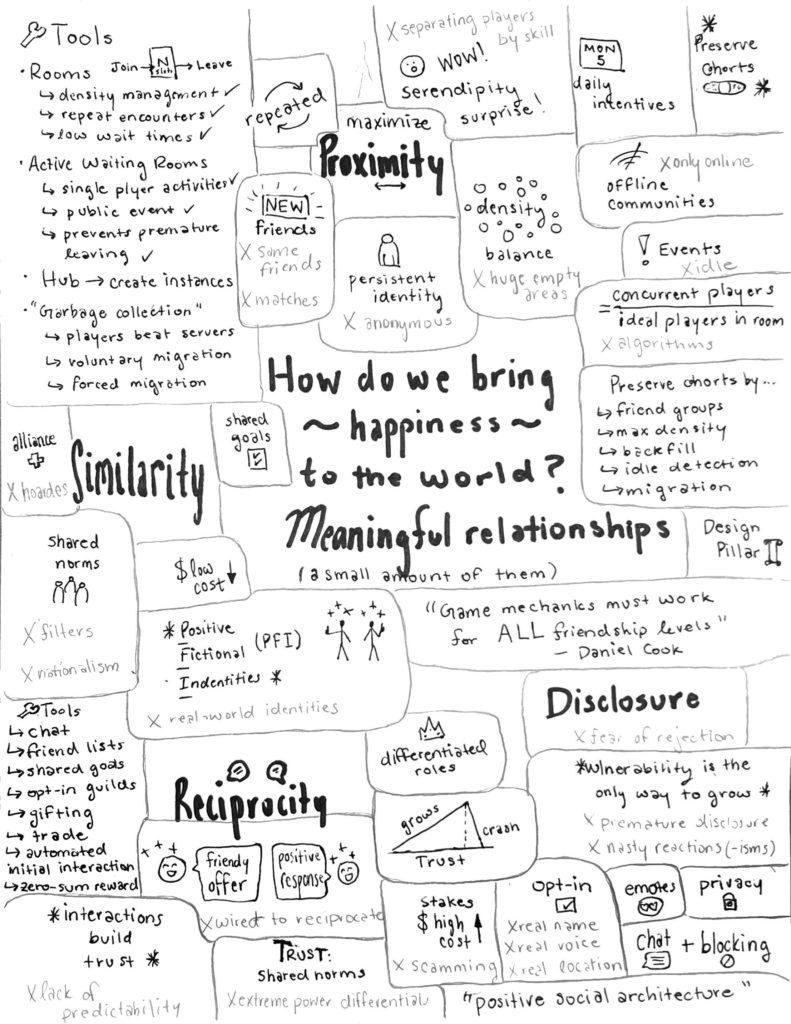 Tools
· Rooms
Join → N slots → Leave
↳ density management ✓
↳ repeat encounters ✓
↳ low wait times ✓
· Active Waiting Rooms
↳ single plyer activities ✓
↳ public event ✓
↳ prevents premature
leaving ✓
· Hub → create instances
· "Garbage collection"
↳ players beat servers
↳ voluntary migration
↳ forced migration
repeated
X separating players
by skill
WOW!
serendipity
surprise!
MON
5
daily
incentives
*
Preserve
Cohorts
*
maximize
Proximity
NEW
friends
X same
friends
X matches
persistent
identity
X anonymous
density
balance
X huge empty
areas
X only online
offline
communities
! Events
X idle
= concurrent players
ideal players in room
X algorithms
Preserve cohorts by...
↳ friend groups
↳ max density
↳ backfill
↳ idle detection
↳ migration
How do we bring
~ happiness ~
to the world?
Meaningful relationships
(a small amount of them)
Design
Pillar
alliance
X hoardes
Similarity
shared
goals
shared
norms
X filters
X nationalism
$ low
cost ↓
* Positive
Fictional (PFI)
· Indentities *
X real-world identities
"Game mechanks must work
for ALL friendship levels"
- Daniel Cook
Tools
↳ chat
↳ friend lists
↳ shared goals
↳ opt-in guilds
↳ gifting
↳ trade
↳ automated
initial interaction
↳ zero-sum reward
Reciprocity
friendy
offer
positive
response
X wired to reciprocate
differentiated
roles
grows
crash
Trust
Disclosure
X fear of rejection
* vulnerability is the
only way to grow *
X premature disclosure
X nasty reactions (-isms)
*interactions
build
trust *
X lack of
predictability
TRUST:
shared norms
X extreme power differential
stakes
$ high
cost ↑
X scamming
opt-in
X real name
X real voice
X real location
emotes
privacy
chat + blocking
"positive social architecture"